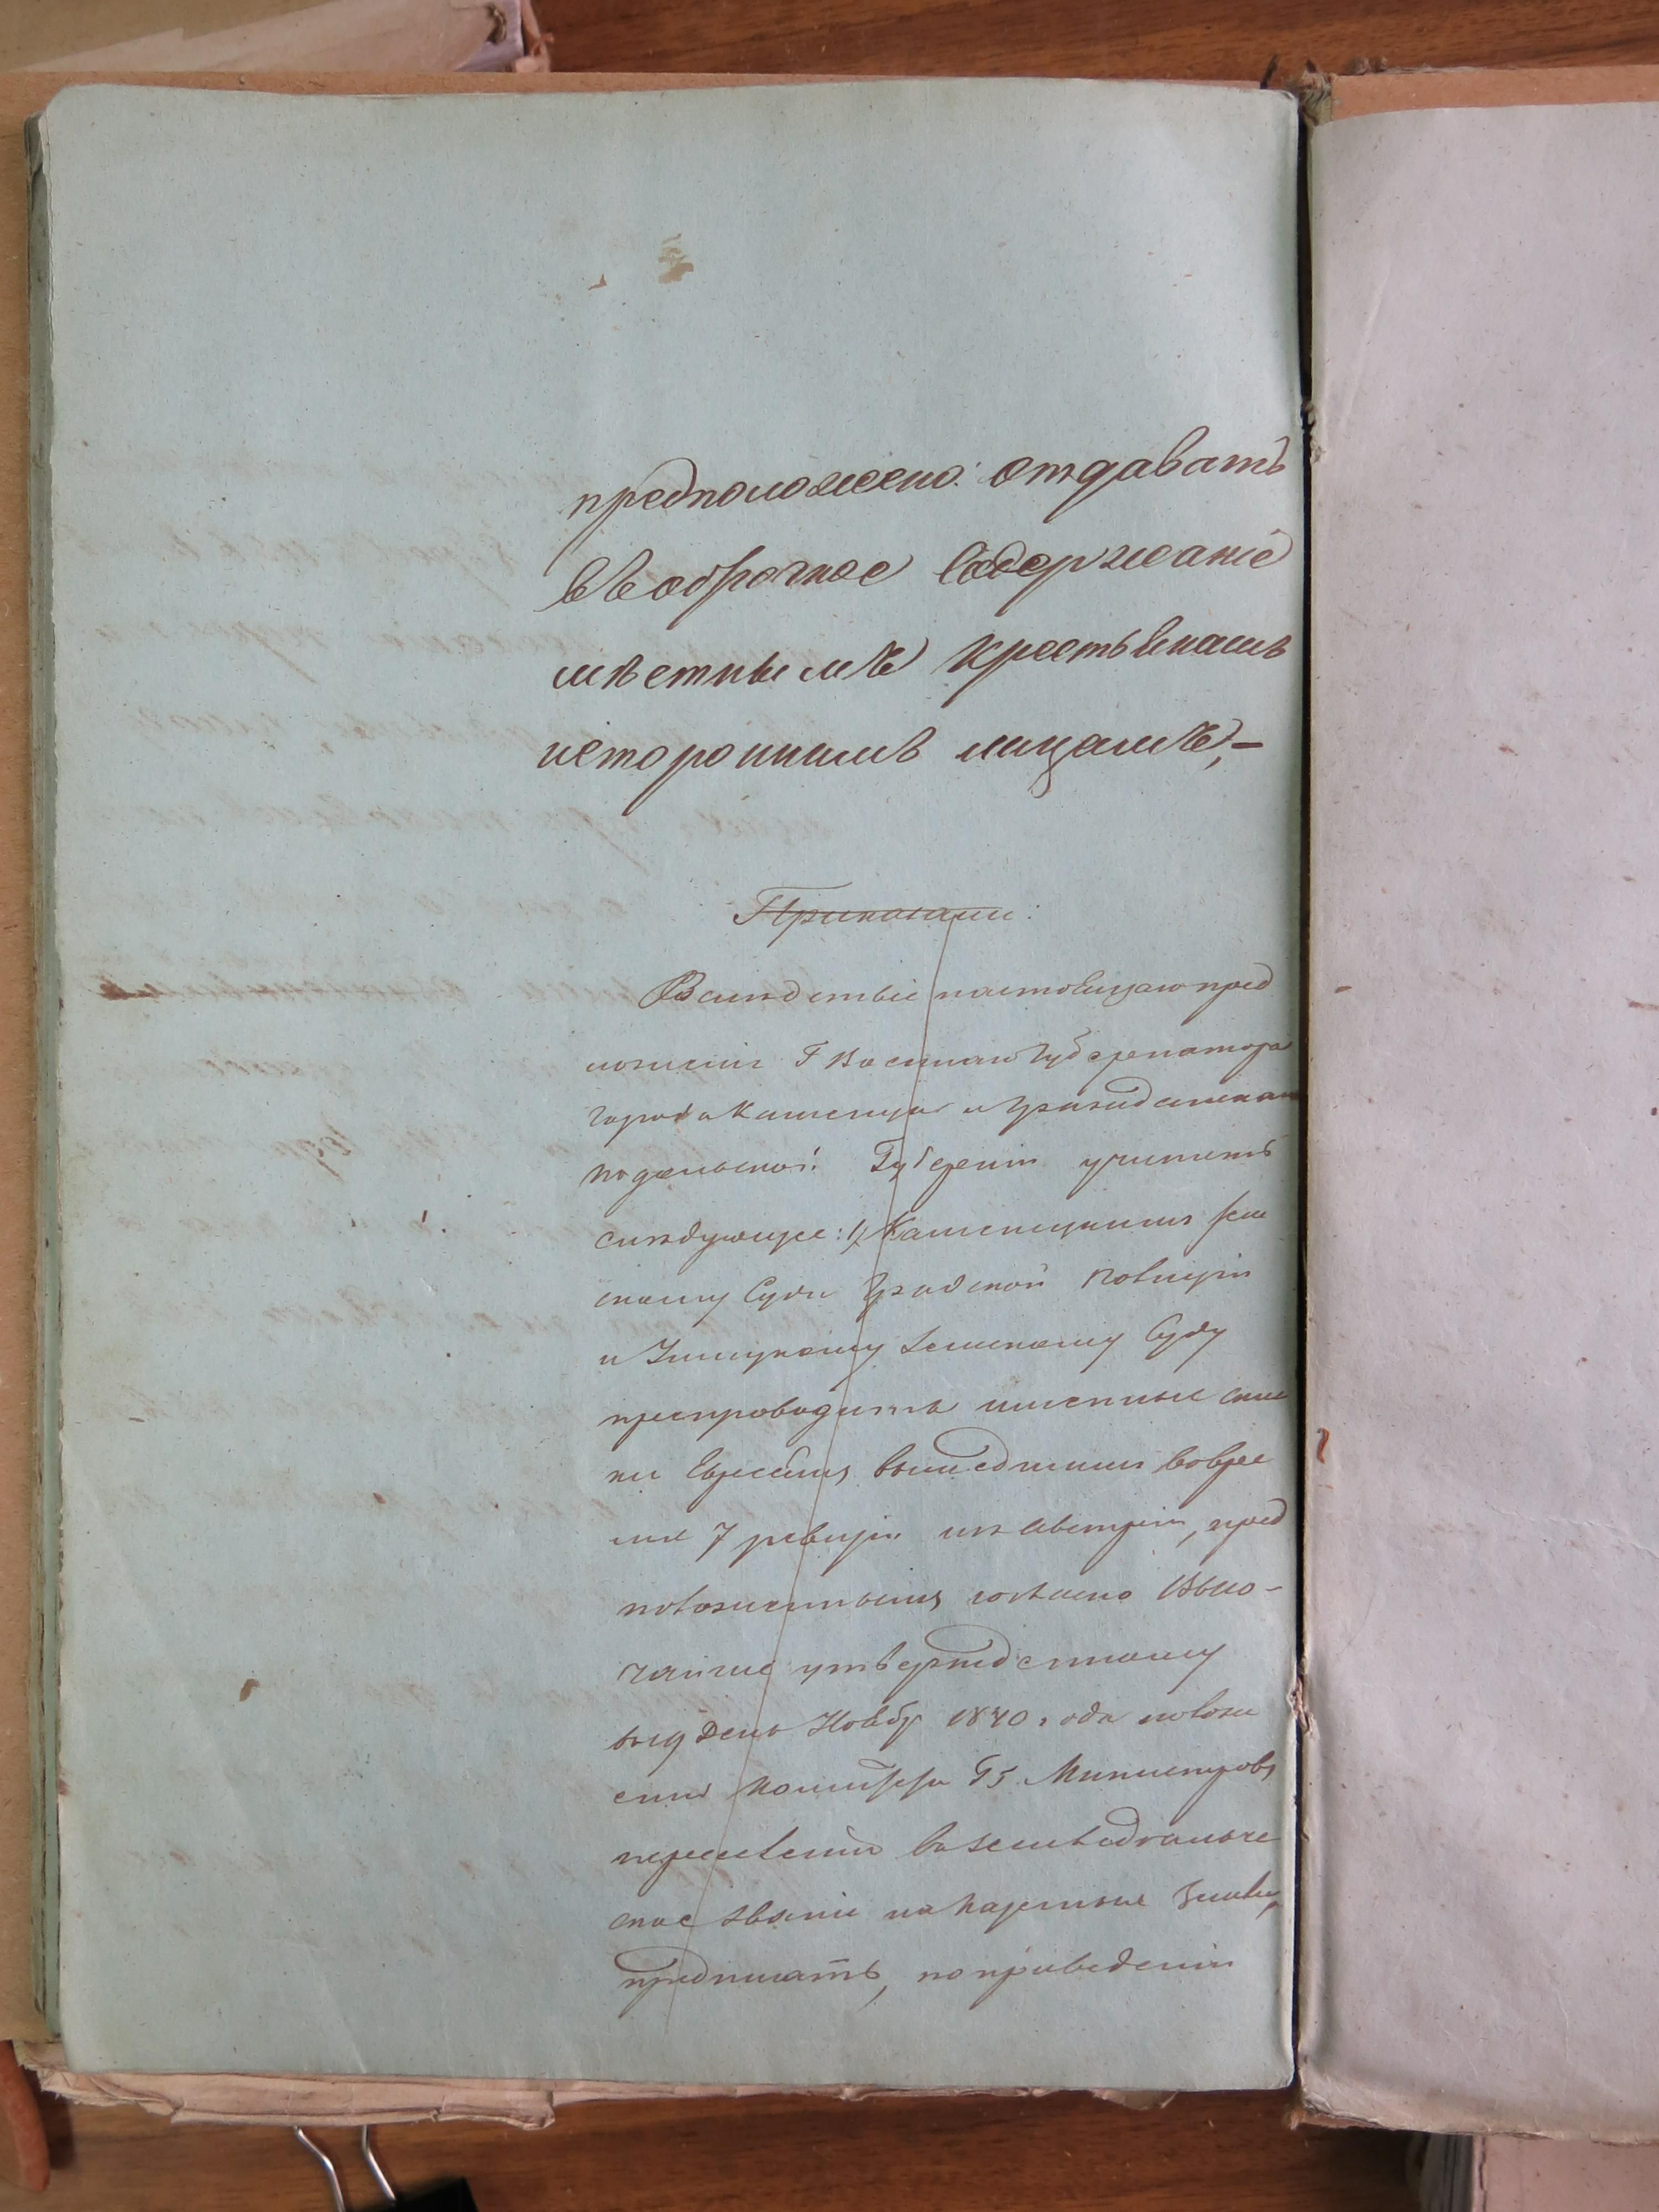 предположено: отдавать
въ оброчное содержаніе
мѣстнымъ крестьянамъ
и стороннимъ лицамъ,—
Приказали:
Вслѣдствіе настоящаго пред
ложенія Г Военнаго Губернатора
города Каменца и Гражданскаго
Подольской Губерніи учинить
слѣдующее: 1, Каменецкимъ Зем
скому Суду Градской Полиціи
и Ушицкому Земскому Суду
препроводить именные спис
ки Евреямъ, вышедшимъ во вре
мя 7 ревизіи изъ Австріи, пред
положеннымъ согласно Высо-
чайше утвержденному
въ 19 день Ноябр 1840 года положе
нію Комитета ГГ. Министровъ
переселенію въ земледѣльче
ское званіе на казенные земли,
предписать, по приведеніи